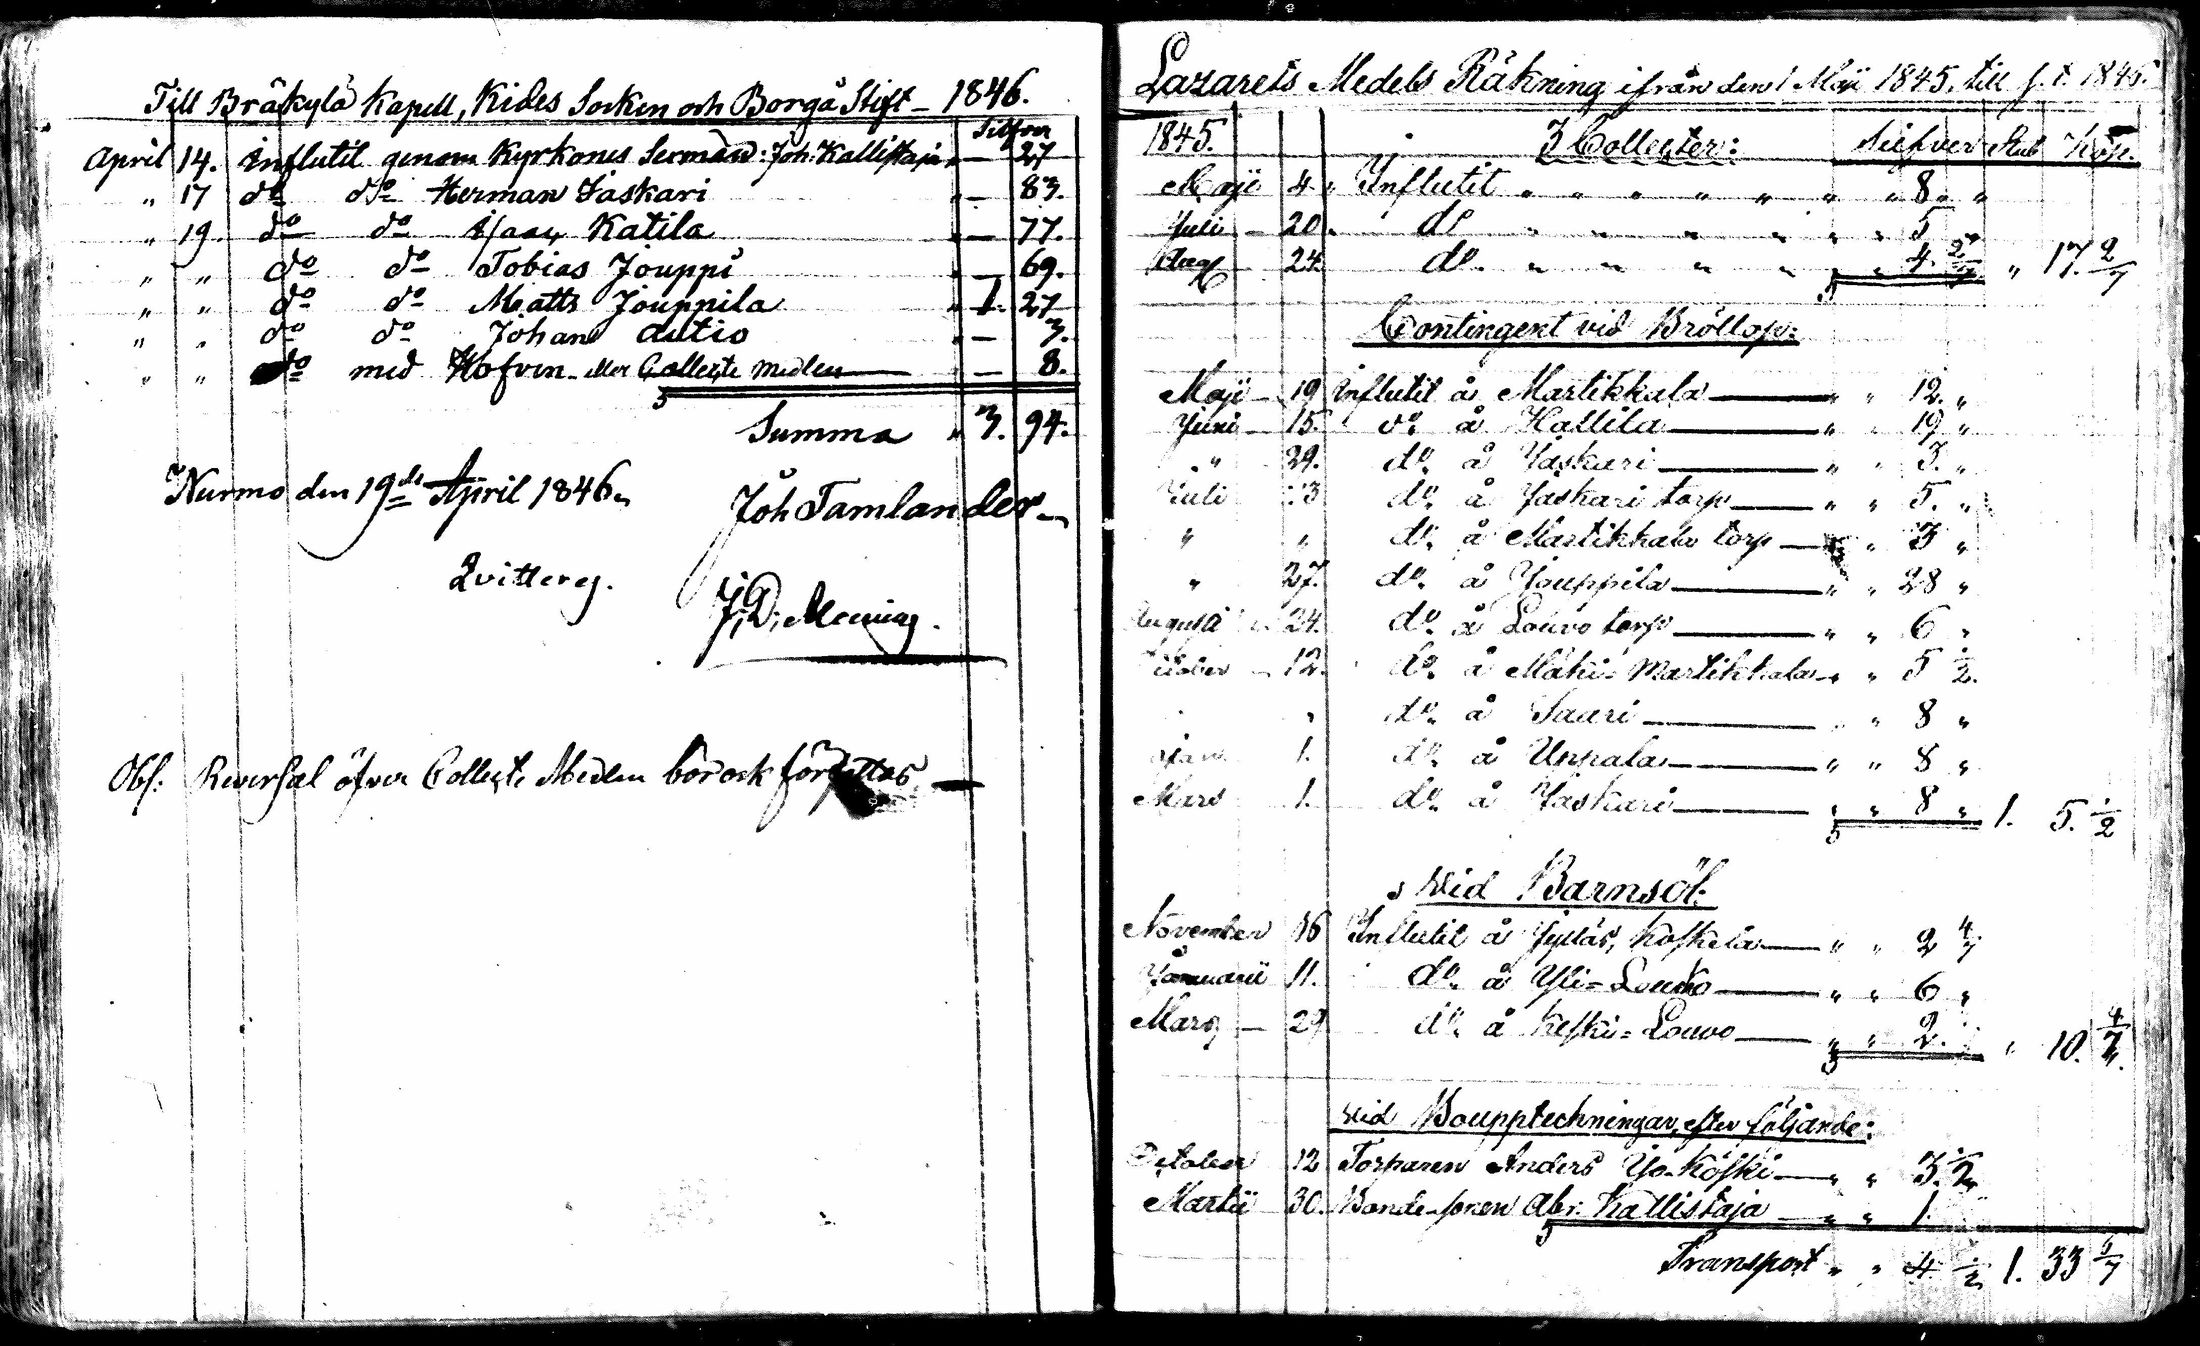 Till Bräkylä Kapell, Kides Socken och Borgå Stift – 1846.
Silfver
April 14. Influtit genom Kyrkones Sexmän: Joh. Kallistaja " — 27
" 17 do do Herman Jaskari " — 83.
" 19 do do Isaac Katila " — 77.
" " do do Tobias Jouppi " — 69.
" " do do Matts Jouppila " 1. 27
" " do do Johan Autio " — 3.
" " do med Hofven eller Collecte medlen " — 8.
Summa " 3. 94.
Nurmo den 19de April 1846.
Joh Tamlander
Qvitteras.
Obs: Reversal öfver Collects Medlen bör ock författas —
Lazarets Medels Räkning ifrån den 1 Maji 1845, till s. t. 1846.
1845. 3 Collecter: Silfver Rub Kop.
Maji 4 " Influtit " " " " " " " 8. "
Juli – 20. do " " " " " " 5
Aug 24. do. " " " " " " 4. 2/7 " 17. 2/7
Contingent vid Bröllop:
Maji – 19 Influtit å Martikkala — " " 12. "
Juni – 15. do. å Hallila — " " 19 "
" 29. do. å Jaskari — " " 3. "
Juli 13 do. å Jaskari torp — " " 5. "
" " do. å Martikkala torp — " " 3 "
" 27. do. å Jouppila — " " 28 "
Augusti 24. do. å Louvo torp — " " 6 "
October – 12. do. å Mäki-Martikkala " " 5 1/2.
" do. å Saari — " " 8 "
Jan 1. do. å Uppala — " " 8 "
Mars 1. do. å Jaskari — " " 8 " 1. 5. 1/2
vid Barnsöl:
November 16 Influtit å Jylläs, Koskela — " " 2 4/7
Januarii 11. do. å Yli-Louko — " " 6 "
Mars – 29 do. å Keski-Louvo — " " 2. " 10. 4/7.
vid Boupptechningar, efter följande:
October 12 Torparen Anders Yo-Koski — " " 3. 1/2
Martii 30. Bonde-sonen Abr: Kallistaja — " " 1.
Transport " " 4 1/2 1. 33 6/7